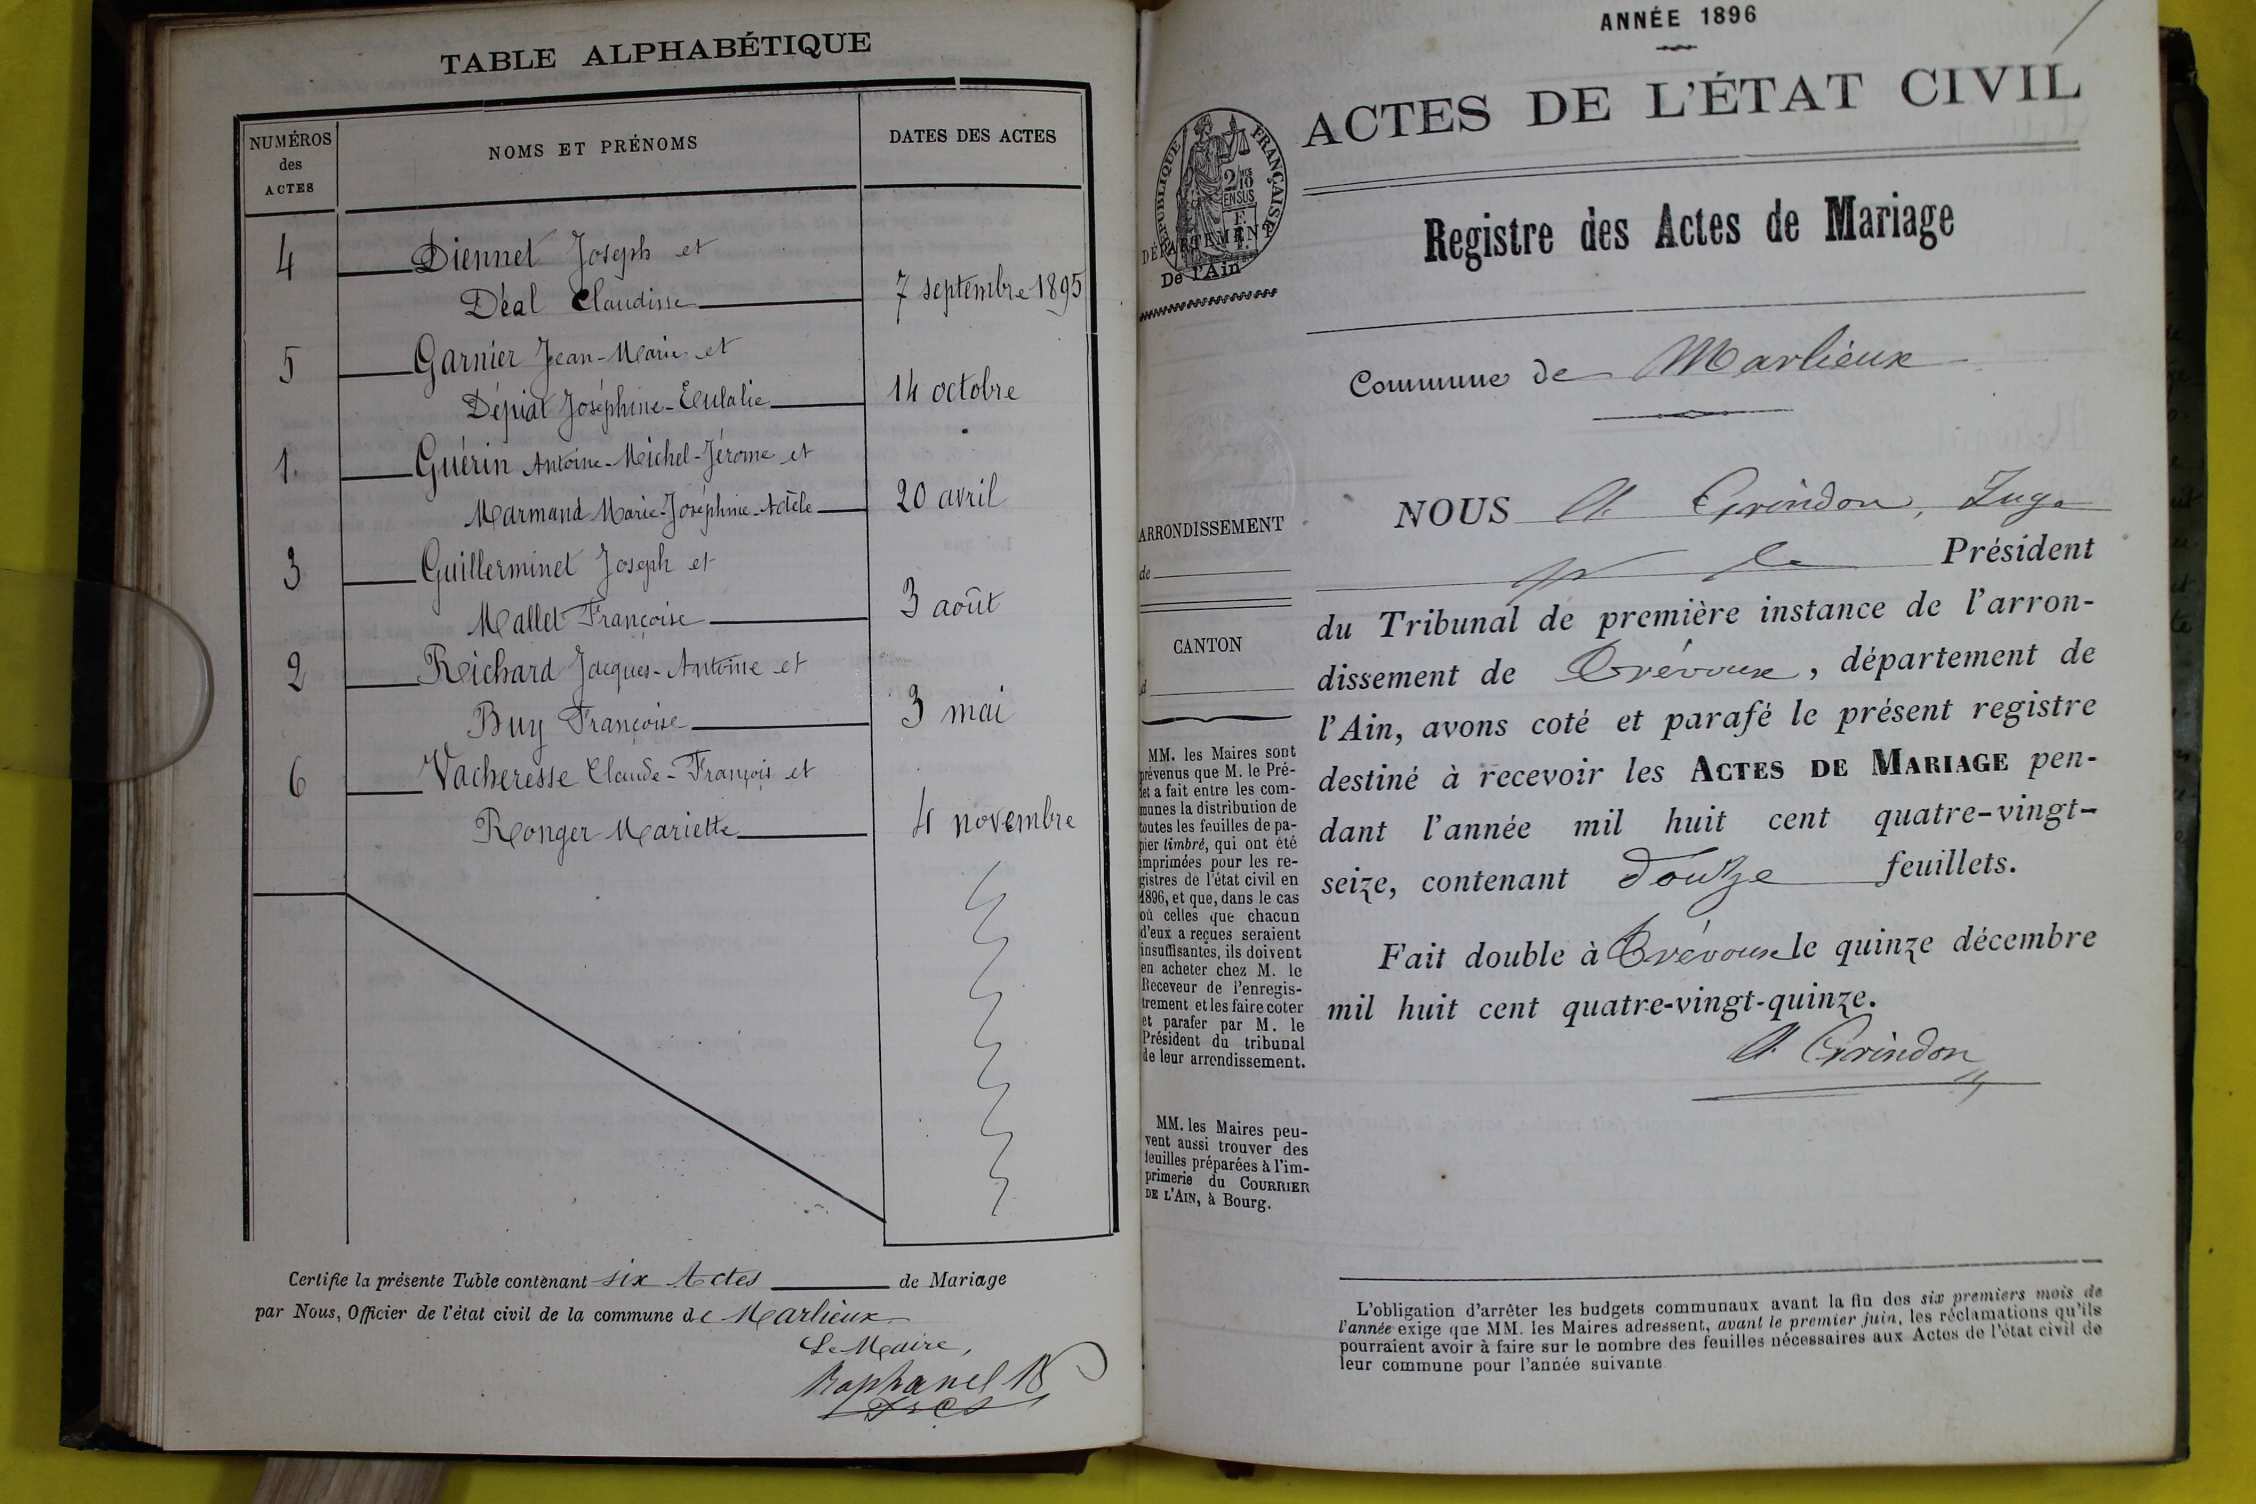 TABLE ALPHABÉTIQUE
NUMÉROS
des
ACTES
NOMS ET PRÉNOMS
DATES DES ACTES
4 Diennet Joseph et
Déal Claudine 7 septembre 1895
5 Garnier Jean-Marie et
Dépiat Joséphine-Eulalie 14 octobre
1. Guérin Antoine-Michel-Jérome et
Marmand Marie-Joséphine-Adèle 20 avril
3 Guillerminet Joseph et
Mallet Françoise 3 août
2 Richard Jacques-Antoine et
Buy Françoise 3 mai
6 Vacheresse Claude-François et
Ronger Mariette 4 novembre
Certifie la présente Table contenant six Actes de Mariage
par Nous, Officier de l'état civil de la commune de Marlieux
Le Maire,
Raphanel
ANNÉE 1896
ACTES DE L'ÉTAT CIVIL
RÉPUBLIQUE FRANÇAISE
2/10
EN SUS
DÉPARTEMENT
De l'Ain
Registre des Actes de Mariage
Commune de Marlieux
ARRONDISSEMENT
de
CANTON
d
MM. les Maires sont
prévenus que M. le Pré-
fet a fait entre les com-
munes la distribution de
toutes les feuilles de pa-
pier timbré, qui ont été
imprimées pour les re-
gistres de l'état civil en
1896, et que, dans le cas
où celles que chacun
d'eux a reçues seraient
insuffisantes, ils doivent
en acheter chez M. le
Receveur de l'enregis-
trement et les faire coter
et parafer par M. le
Président du tribunal
de leur arrondissement.
MM. les Maires peu-
vent aussi trouver des
feuilles préparées à l'im-
primerie du COURRIER
DE L'AIN, à Bourg.
NOUS A. Grindon, Juge
pr le Président
du Tribunal de première instance de l'arron-
dissement de Trévoux, département de
l'Ain, avons coté et parafé le présent registre
destiné à recevoir les ACTES DE MARIAGE pen-
dant l'année mil huit cent quatre-vingt-
seize, contenant douze feuillets.
Fait double à Trévoux le quinze décembre
mil huit cent quatre-vingt-quinze.
A. Grindon
L'obligation d'arrêter les budgets communaux avant la fin des six premiers mois de
l'année exige que MM. les Maires adressent, avant le premier juin, les réclamations qu'ils
pourraient avoir à faire sur le nombre des feuilles nécessaires aux Actes de l'état civil de
leur commune pour l'année suivante